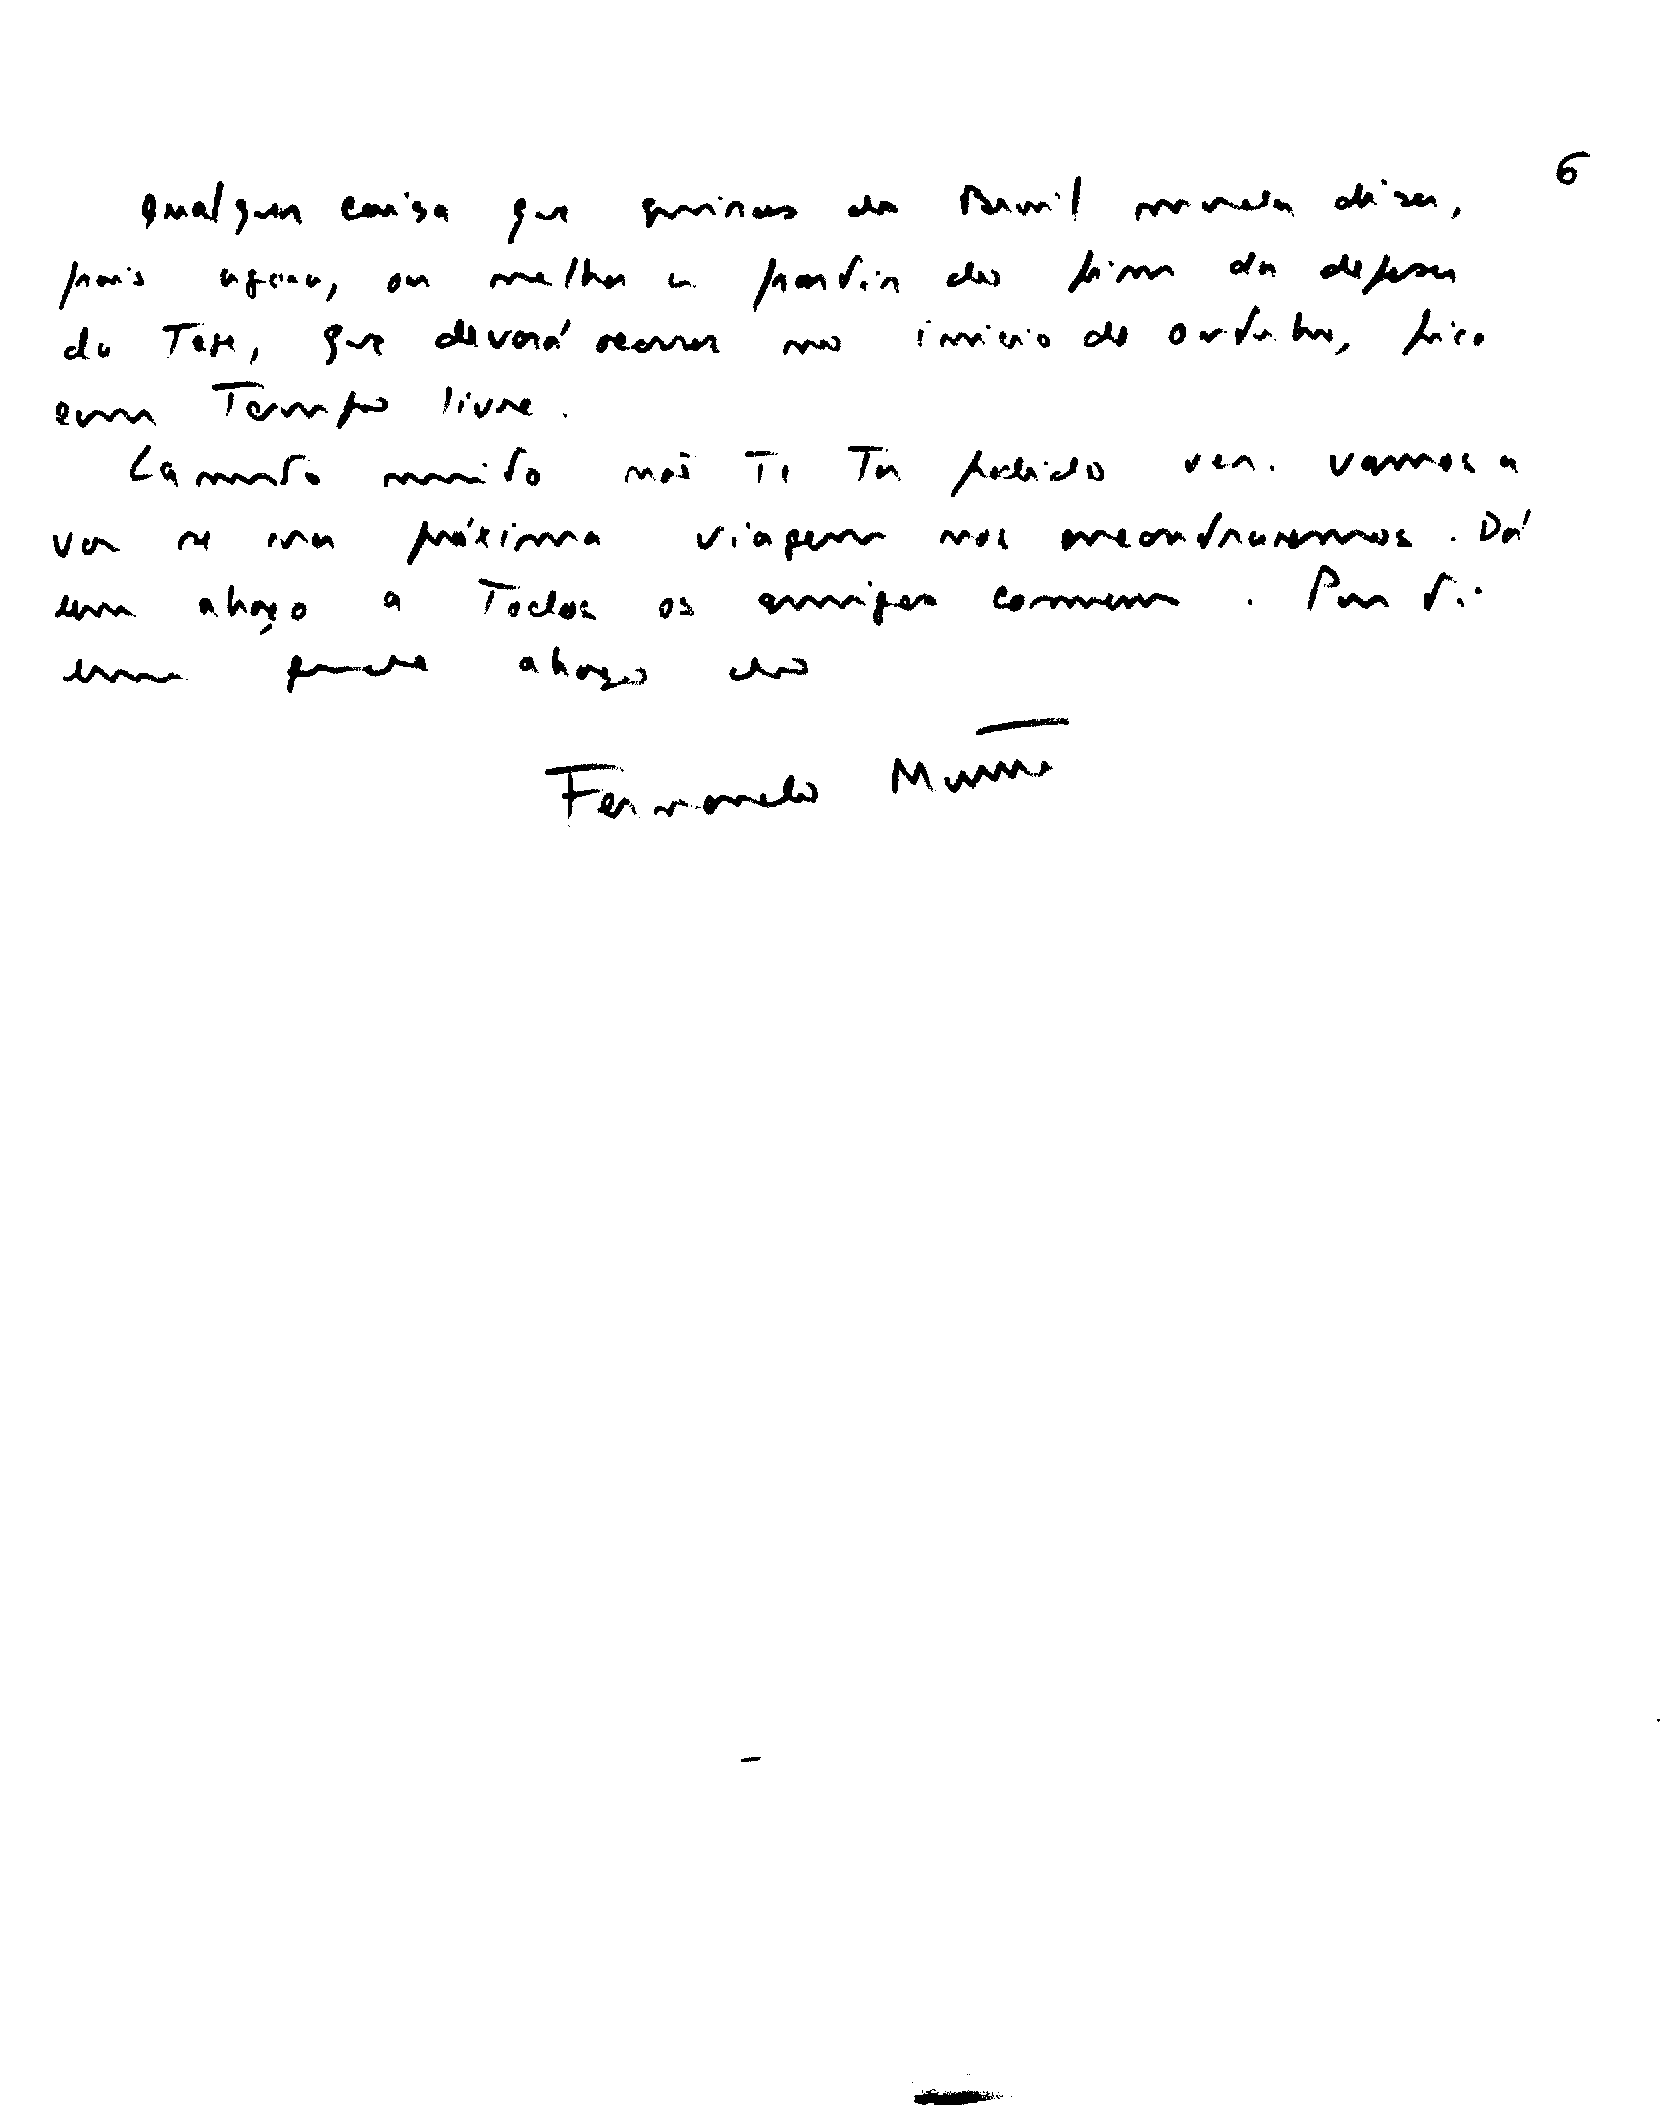 6
Qualquer coisa que quiseres do Brasil manda dizer,
pois agora, ou melhor a partir do fim da defesa
da Tese, que deverá ocorrer no início de outubro, fico
com Tempo livre.
Lamento muito não Te Ter podido ver. Vamos a
ver se na próxima viagem nos encontraremos. Dá
um abraço a Todos os amigos comuns. Para ti
um grande abraço do
Fernando